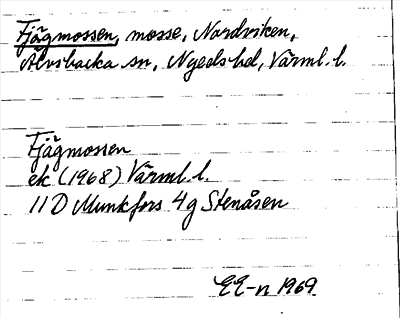 Fjägmossen, mosse, Nordviken,
Älvsbacka sn, Nyeds hd, Värml. l.
Fjägmossen
ek (1968) Värml. l.
11D Munkfors 4g Stenåsen
EE-n 1969